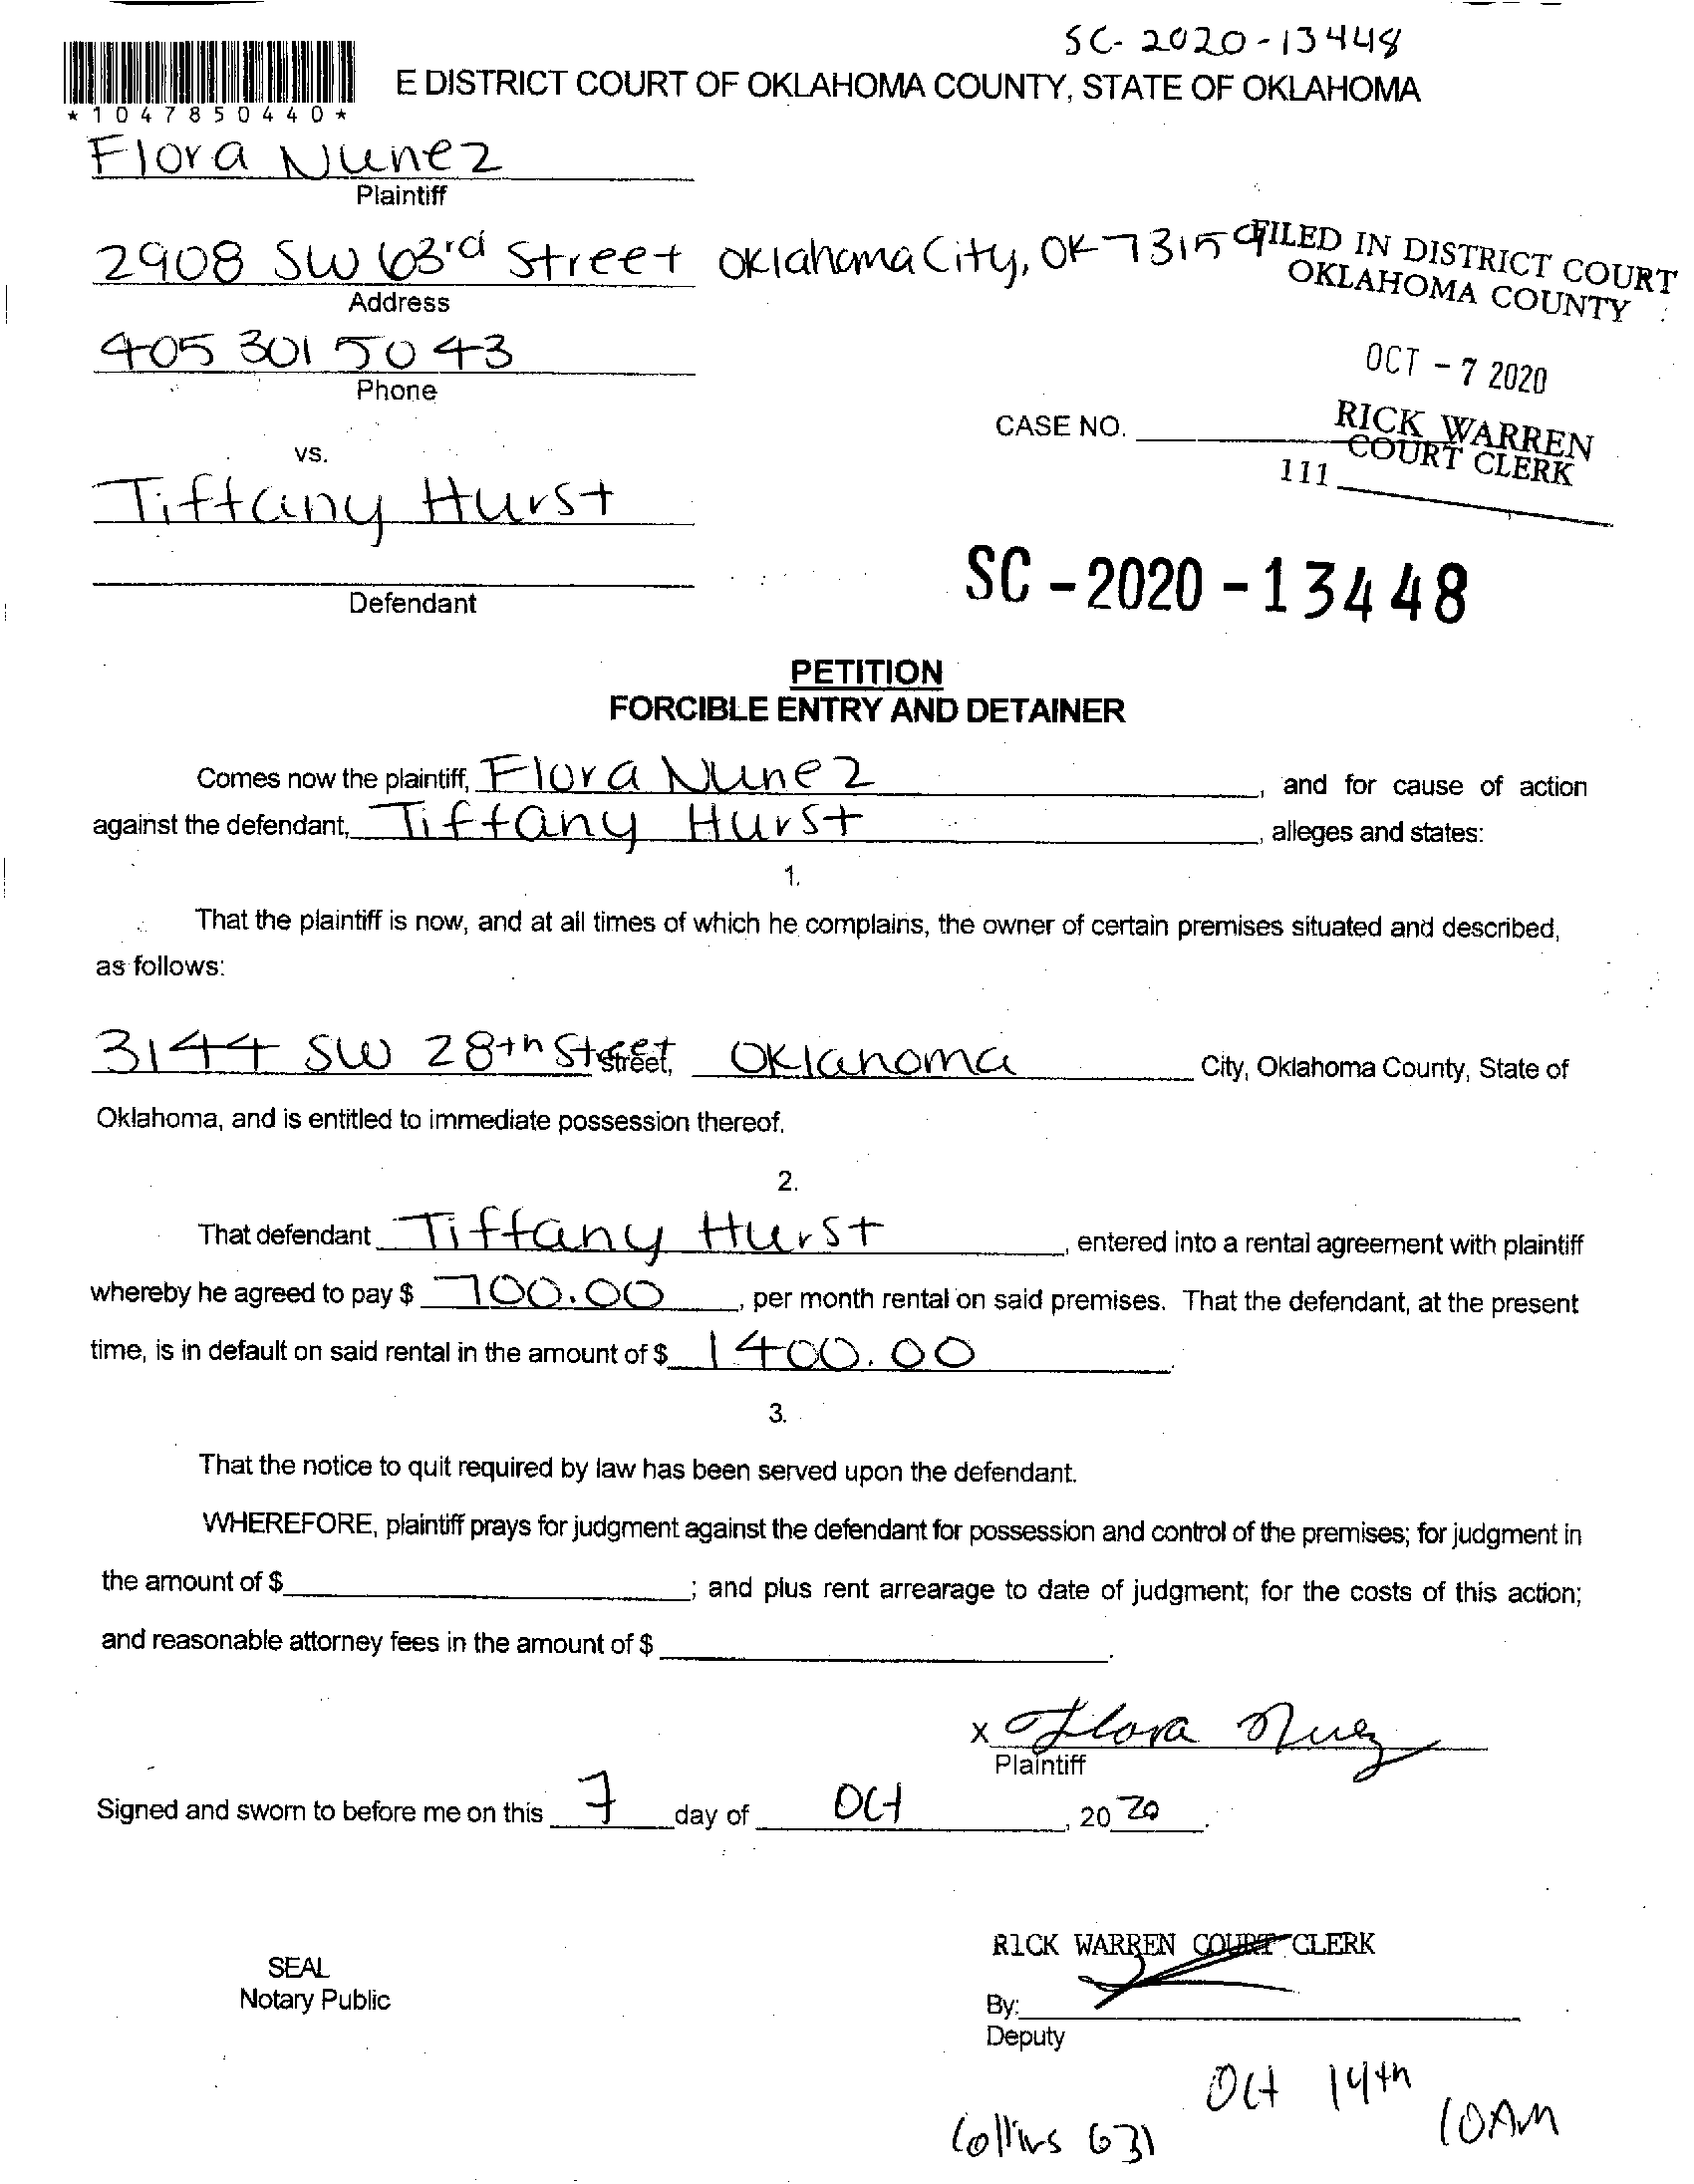 SC-2020-13448
E DISTRICT COURT OF OKLAHOMA COUNTY, STATE OF OKLAHOMA
*1047850440*
Flora Nunez
Plaintiff
2908 SW 63rd Street Oklahoma City, OK 73159
Address
FILED IN DISTRICT COURT
OKLAHOMA COUNTY
405 301 5043
Phone
OCT - 7 2020
RICK WARREN
COURT CLERK
CASE NO.
111
vs.
Tiffany Hurst
Defendant
SC - 2020 - 13448
PETITION
FORCIBLE ENTRY AND DETAINER
Comes now the plaintiff, Flora Nunez, and for cause of action
against the defendant, Tiffany Hurst, alleges and states:
1.
That the plaintiff is now, and at all times of which he complains, the owner of certain premises situated and described,
as follows:
3144 SW 28th Street Street, Oklahoma City, Oklahoma County, State of
Oklahoma, and is entitled to immediate possession thereof.
2.
That defendant Tiffany Hurst, entered into a rental agreement with plaintiff
whereby he agreed to pay $ 700.00, per month rental on said premises. That the defendant, at the present
time, is in default on said rental in the amount of $ 1400.00.
3.
That the notice to quit required by law has been served upon the defendant.
WHEREFORE, plaintiff prays for judgment against the defendant for possession and control of the premises; for judgment in
the amount of $ ; and plus rent arrearage to date of judgment; for the costs of this action;
and reasonable attorney fees in the amount of $ .
x Flora Nuez
Plaintiff
Signed and sworn to before me on this 7 day of Oct, 2020.
RICK WARREN COURT CLERK
SEAL
Notary Public
By:
Deputy
Oct 14th
10AM
Collins 631